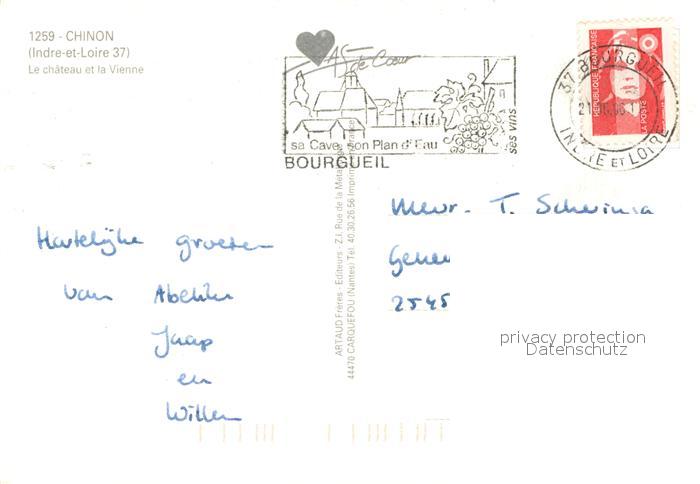 1259 - CHINON
(Indre-et-Loire 37)
Le château et la Vienne
sa Cave, son Plan d'Eau
ses vins
BOURGUEIL
37 BOURGUEIL
INDRE ET LOIRE
REPUBLIQUE FRANÇAISE
LA POSTE
ARTAUD Frères - Editeurs - Z.I. Rue de la Métallurgie
44470 CARQUEFOU (Nantes) Tél. 40.30.26.56 Imprimé en France
Hartelijke groeten
van
Jaap
en
Willem
Mevr. T.
2545
privacy protection
Datenschutz